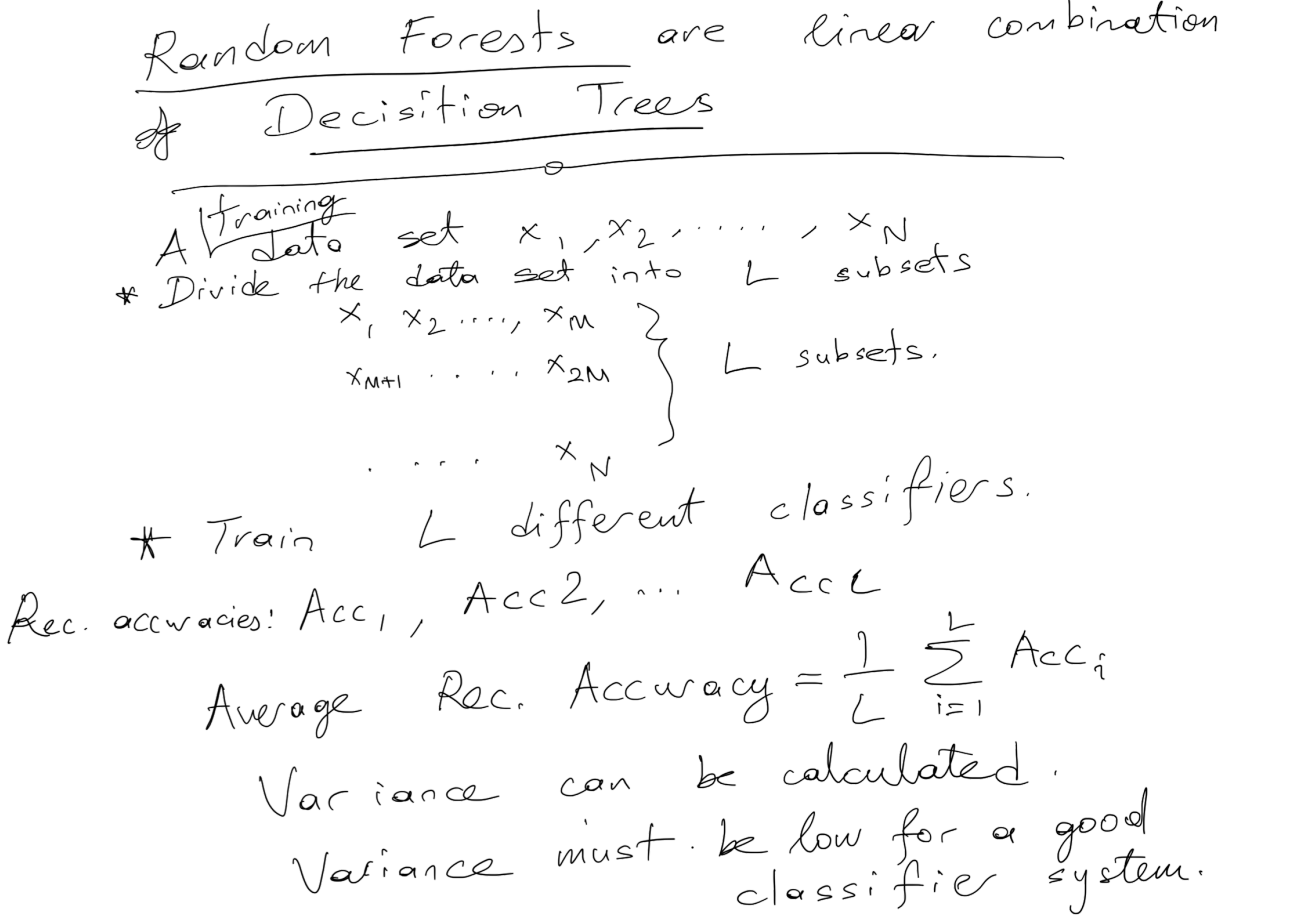 Random Forests are linear combination
of Decisition Trees
training
A data set x₁, x₂, ....., x_N
* Divide the data set into L subsets
x₁ x₂ ....., x_M
x_{M+1} ..... x_{2M} } L subsets.
..... x_N
* Train L different classifiers.
Rec. accuracies: Acc₁, Acc2, ... Acc L
Average Rec. Accuracy = 1/L ∑_{i=1}^{L} Acc_i
Variance can be calculated.
Variance must be low for a good
classifier system.